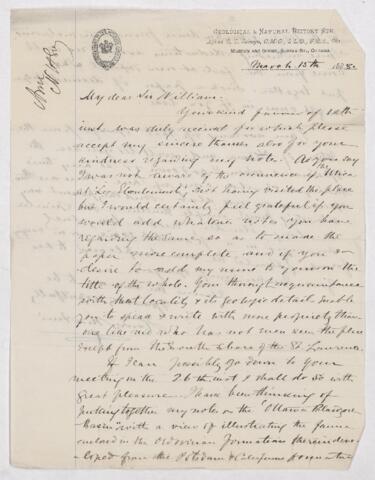 GEOLOGICAL & NATURAL HISTORY SUR
C.M.G., LL.D., F.R.S.
MUSEUM AND OFFICE, SUSSEX ST., OTTAWA
March 15th 188
My dear Sir William:
Your kind favour of 12th
inst. was duly received for which please
accept my sincere thanks also for your
kindness regarding my note. As you say
I was not aware of the occurrence of Utica
at Les Eboulements, not having visited the place
but I would certainly feel grateful if you
would add whatever notes you have
regarding the same so as to make the
paper more complete, and if you so
desire to add my name to yours on the
title of the whole. Your thorough acquaintance
with that locality & its geologic detail enable
you to speak & write with more propriety than
one like me who has not even seen the place
except from the South shore of the St. Lawrence.
If I can possibly go down to your
meeting on the 26th inst I shall do so with
great pleasure. I have been thinking of
putting together my notes on the "Ottawa Palaeozoic
Basin" with a view of illustrating the fauna
enclosed in the Ordovician formations there
from the Potsdam & Calciferous formation